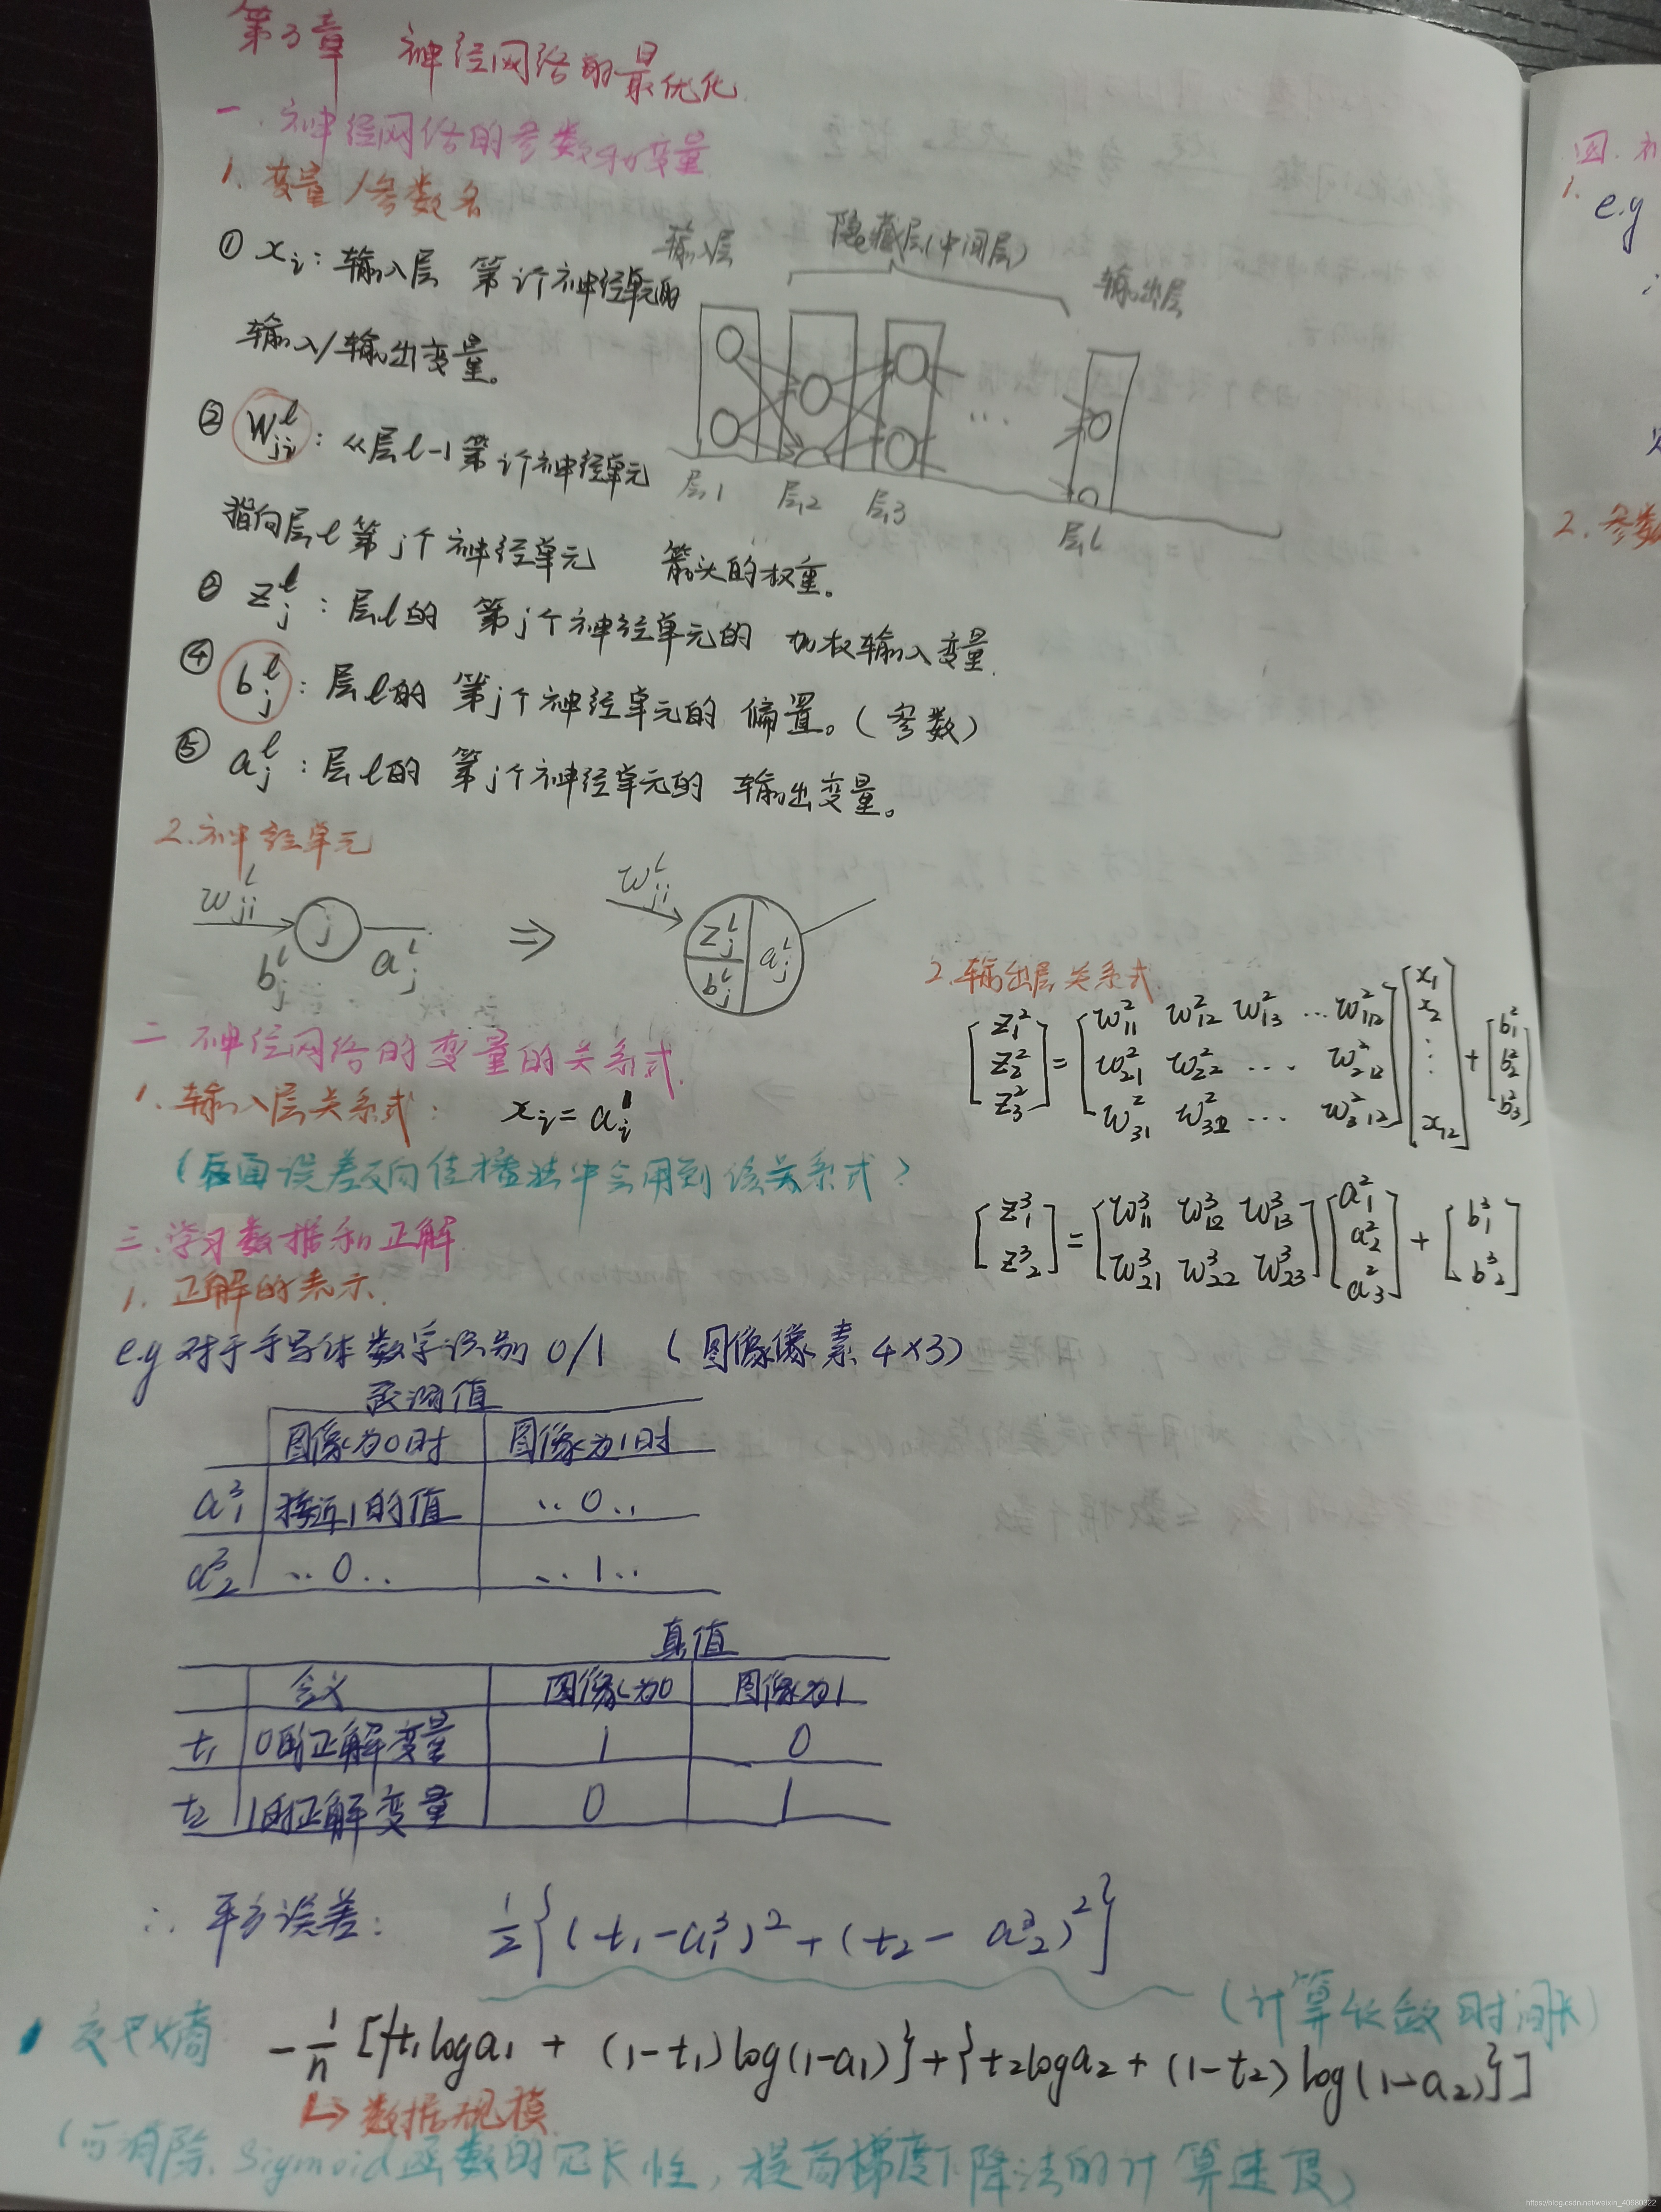 第3章 神经网络的最优化
一. 神经网络的参数和变量
1. 变量/参数名
① xᵢ: 输入层 第i个神经单元的
输入/输出变量。
② wⱼᵢˡ: 从层l-1第i个神经单元
指向层l第j个神经单元 箭头的权重。
③ zⱼˡ: 层l的 第j个神经单元的 加权输入变量.
④ bⱼˡ: 层l的 第j个神经单元的 偏置。(参数)
⑤ aⱼˡ: 层l的 第j个神经单元的 输出变量。
输入层 隐藏层(中间层) 输出层
...
层1 层2 层3 层L
2.神经单元
wⱼᵢˡ j bⱼˡ aⱼˡ ⇒ wⱼᵢˡ zⱼˡ bⱼˡ aⱼˡ
二 神经网络的变量的关系式.
1. 输入层关系式: xᵢ = aᵢ¹
(后面误差反向传播法中会用到该关系式)
2.输出层关系式
[z₁² z₂² z₃²] = [w₁₁² w₁₂² w₁₃² ... w₁₁₂² w₂₁² w₂₂² ... w₂₁₂² w₃₁² w₃₂² ... w₃₁₂²] [x₁ x₂ ⋮ x₁₂] + [b₁² b₂² b₃²]
[z₁³ z₂³] = [w₁₁³ w₁₂³ w₁₃³ w₂₁³ w₂₂³ w₂₃³] [a₁² a₂² a₃²] + [b₁³ b₂³]
三.学习数据和正解
1. 正解的表示.
e.g 对于手写体数字识别 0/1 (图像像素 4×3)
预测值
图像为0时 图像为1时
a₁³ 接近1的值 ..0..
a₂³ ..0.. ..1..
真值
含义 图像为0 图像为1
t₁ 0的正解变量 1 0
t₂ 1的正解变量 0 1
∴ 平方误差: ½{(t₁-a₁³)²+(t₂-a₂³)²}
(计算收敛时间长)
交叉熵 -1/n [{t₁loga₁ + (1-t₁)log(1-a₁)}+{t₂loga₂+(1-t₂)log(1-a₂)}]
↳ 数据规模
(可消除 Sigmoid函数的冗长性, 提高梯度下降法的计算速度)
四.
1. e.g
2. 参数
https://blog.csdn.net/weixin_40680322